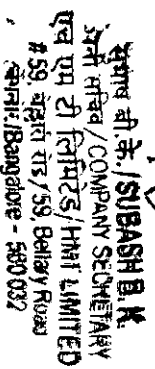 सुभाष बी.के./SUBASH B.K.
कंपनी सचिव/COMPANY SECRETARY
एच एम टी लिमिटेड/HMT LIMITED
#59, बेल्लारी रोड/59, Bellary Road
/Bangalore - 560 032